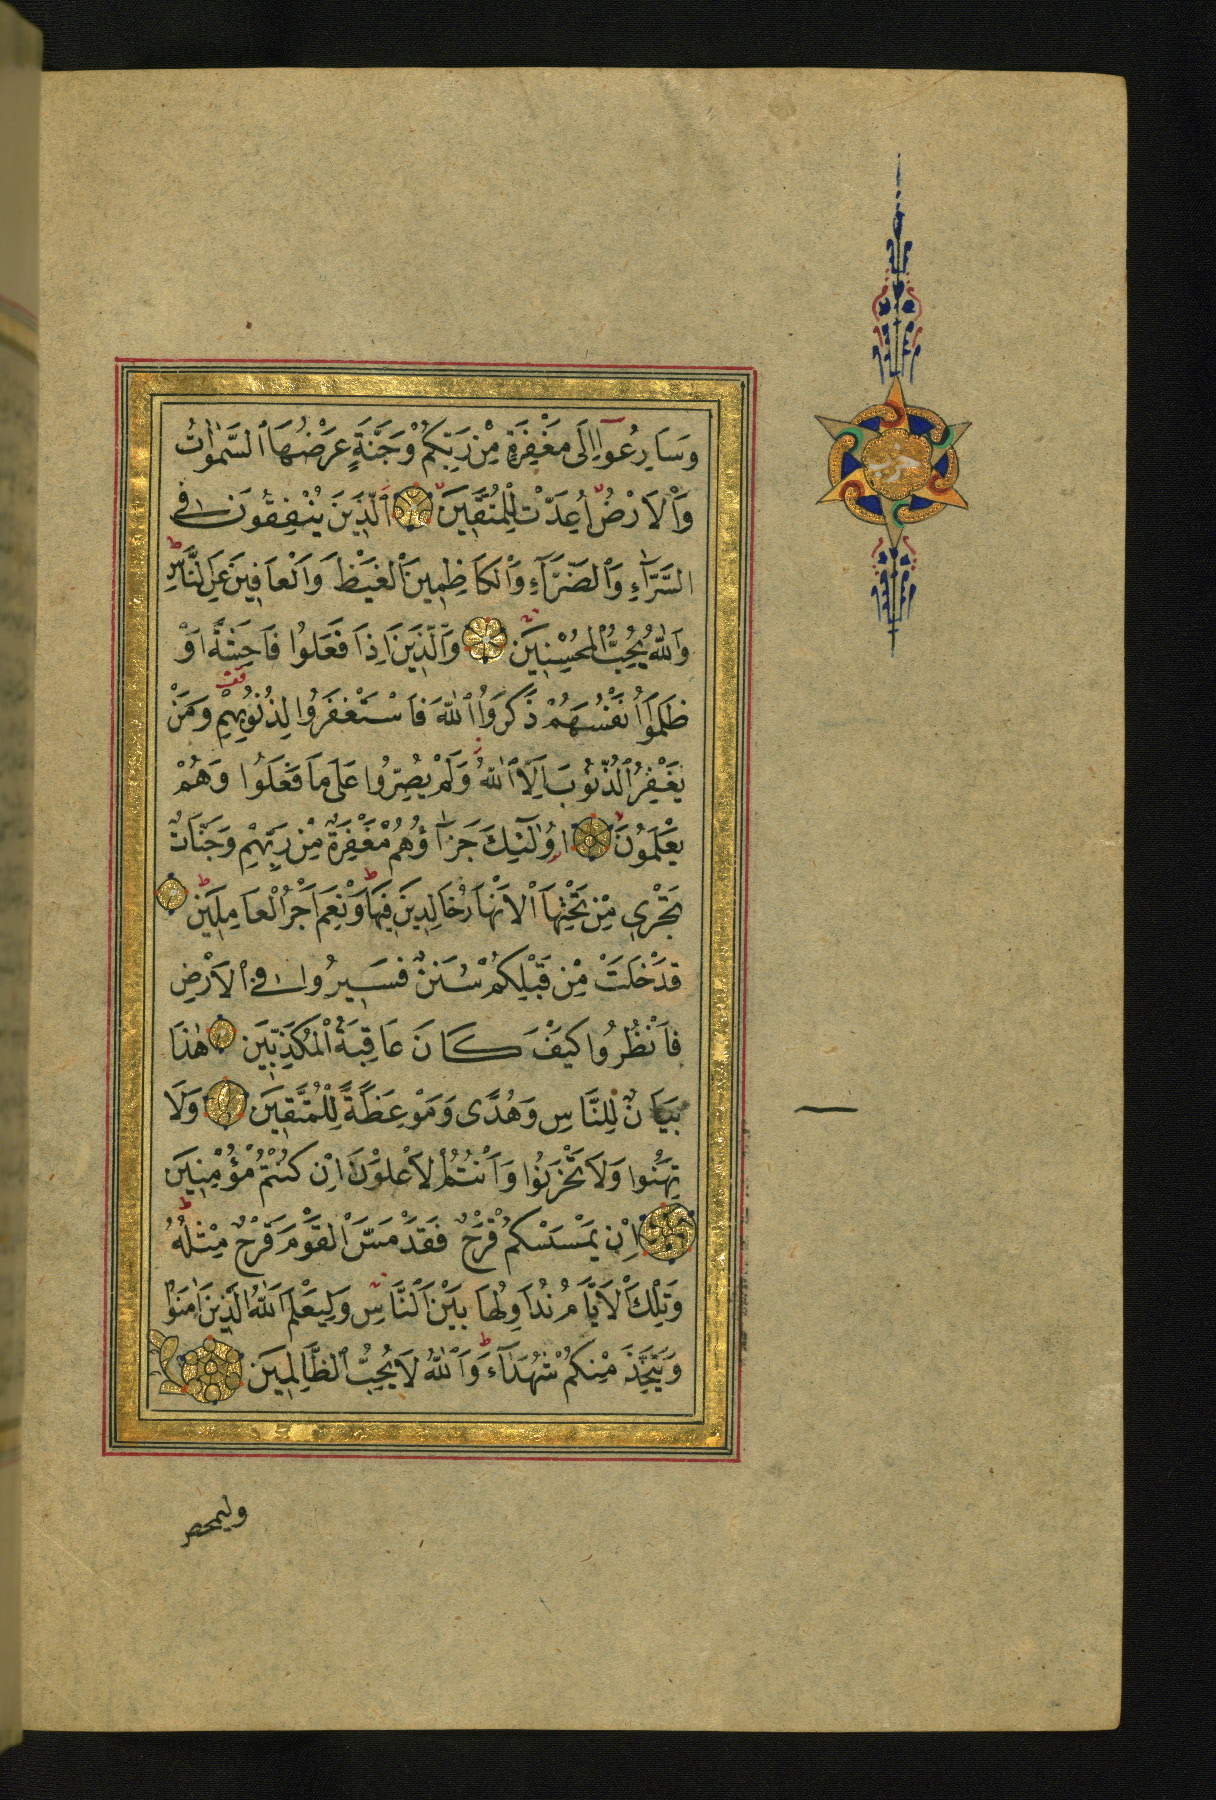 وَسَارِعُوٓا اِلٰى مَغْفِرَةٍ مِنْ رَبِّكُمْ وَجَنَّةٍ عَرْضُهَا السَّمٰوَاتُ
وَالْاَرْضُ اُعِدَّتْ لِلْمُتَّقِينَ اَلَّذِينَ يُنْفِقُونَ فِى
السَّرَّٓاءِ وَالضَّرَّٓاءِ وَالْكَاظِمِينَ الْغَيْظَ وَالْعَافِينَ عَنِ النَّاسِ
وَاللّٰهُ يُحِبُّ الْمُحْسِنِينَ وَالَّذِينَ اِذَا فَعَلُوا فَاحِشَةً اَوْ
ظَلَمُوٓا اَنْفُسَهُمْ ذَكَرُوا اللّٰهَ فَاسْتَغْفَرُوا لِذُنُوبِهِمْ وَمَنْ
يَغْفِرُ الذُّنُوبَ اِلَّا اللّٰهُ وَلَمْ يُصِرُّوا عَلٰى مَا فَعَلُوا وَهُمْ
يَعْلَمُونَ اُولٰٓئِكَ جَزَٓاؤُهُمْ مَغْفِرَةٌ مِنْ رَبِّهِمْ وَجَنَّاتٌ
تَجْرِى مِنْ تَحْتِهَا الْاَنْهَارُ خَالِدِينَ فِيهَا وَنِعْمَ اَجْرُ الْعَامِلِينَ
قَدْ خَلَتْ مِنْ قَبْلِكُمْ سُنَنٌ فَسِيرُوا فِى الْاَرْضِ
فَانْظُرُوا كَيْفَ كَانَ عَاقِبَةُ الْمُكَذِّبِينَ هٰذَا
بَيَانٌ لِلنَّاسِ وَهُدًى وَمَوْعِظَةٌ لِلْمُتَّقِينَ وَلَا
تَهِنُوا وَلَا تَحْزَنُوا وَاَنْتُمُ الْاَعْلَوْنَ اِنْ كُنْتُمْ مُؤْمِنِينَ
اِنْ يَمْسَسْكُمْ قَرْحٌ فَقَدْ مَسَّ الْقَوْمَ قَرْحٌ مِثْلُهُ
وَتِلْكَ الْاَيَّامُ نُدَاوِلُهَا بَيْنَ النَّاسِ وَلِيَعْلَمَ اللّٰهُ الَّذِينَ اٰمَنُوا
وَيَتَّخِذَ مِنْكُمْ شُهَدَٓاءَ وَاللّٰهُ لَا يُحِبُّ الظَّالِمِينَ
وليمحص